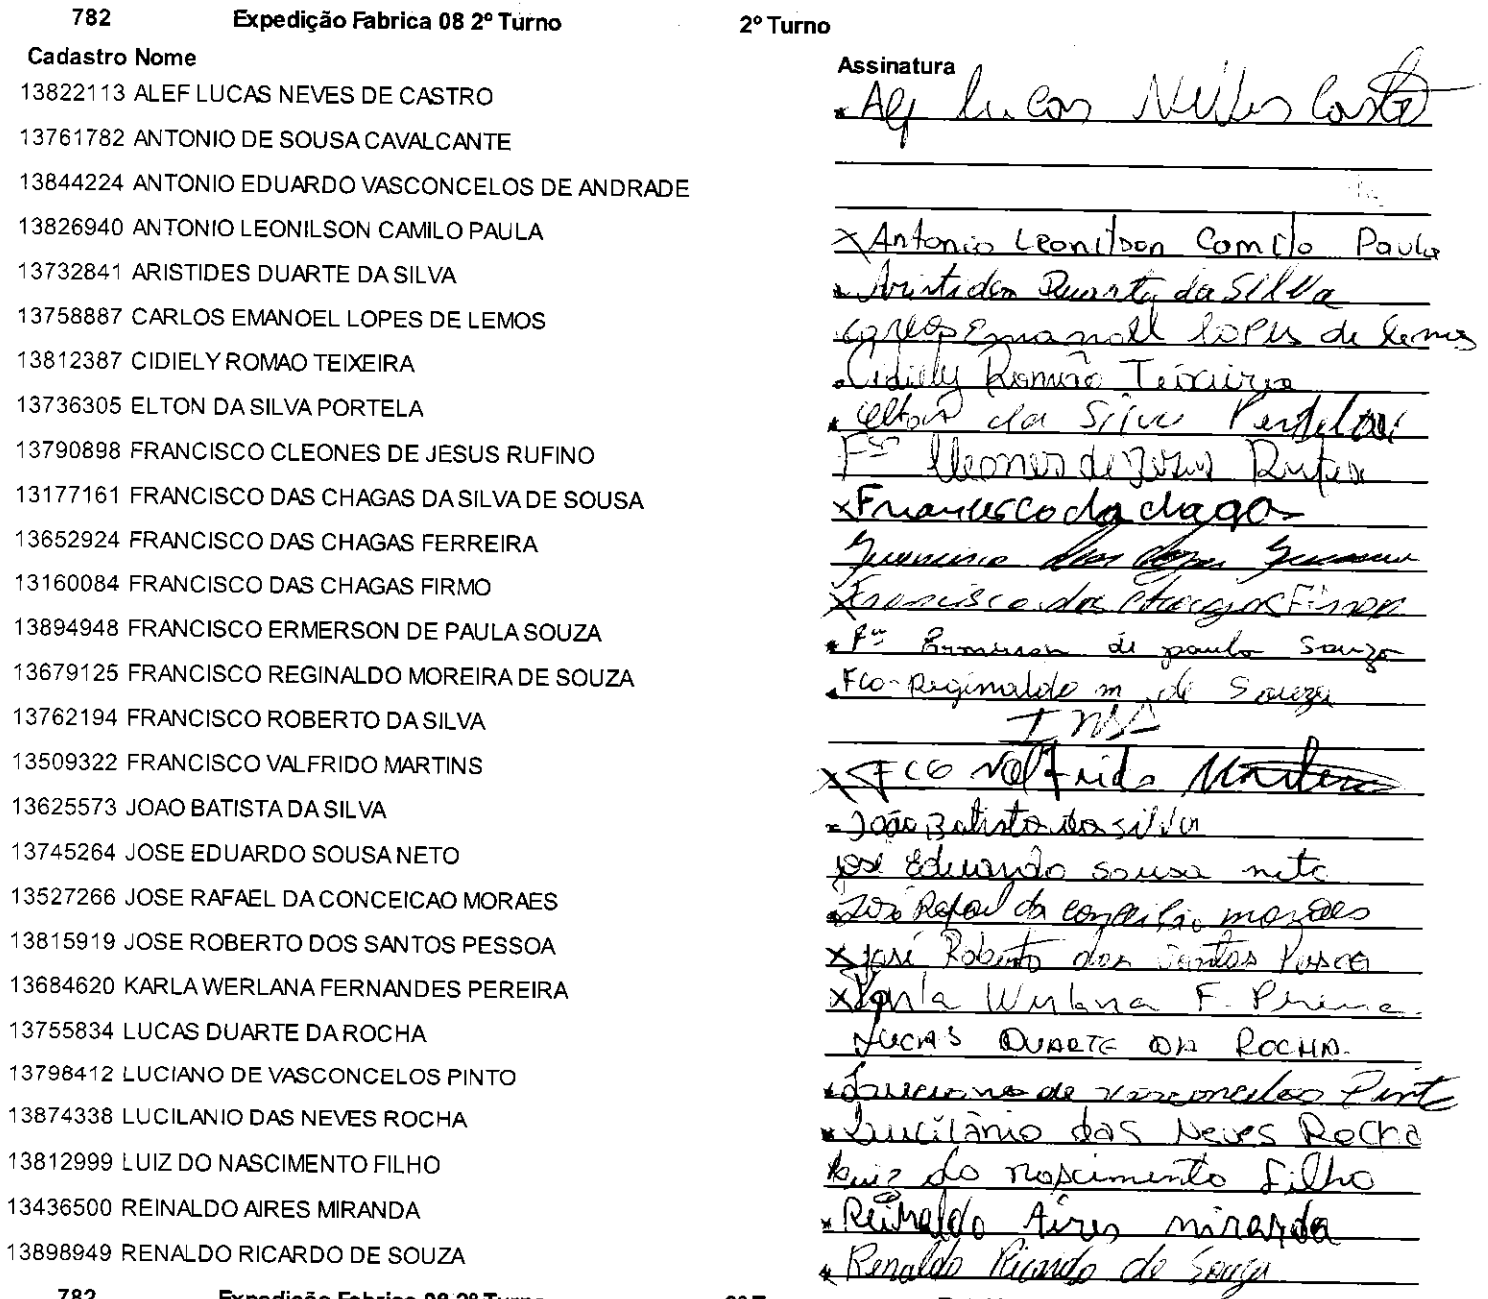 782 Expedição Fabrica 08 2º Turno 2º Turno
Cadastro Nome Assinatura
13822113 ALEF LUCAS NEVES DE CASTRO Lucas Neves Castro
13761782 ANTONIO DE SOUSA CAVALCANTE
13844224 ANTONIO EDUARDO VASCONCELOS DE ANDRADE
13826940 ANTONIO LEONILSON CAMILO PAULA x Antonio Leonilson Camilo Paula
13732841 ARISTIDES DUARTE DA SILVA Aristides Duarte da Silva
13758887 CARLOS EMANOEL LOPES DE LEMOS Carlos Emanoell lopes de lemos
13812387 CIDIELY ROMAO TEIXEIRA Cidiely Romão Teixeira
13736305 ELTON DA SILVA PORTELA elton da Silva
13790898 FRANCISCO CLEONES DE JESUS RUFINO Fco Cleones de Jesus
13177161 FRANCISCO DAS CHAGAS DA SILVA DE SOUSA x Francisco da chaga
13652924 FRANCISCO DAS CHAGAS FERREIRA
13160084 FRANCISCO DAS CHAGAS FIRMO x Francisco das chagas Firmo
13894948 FRANCISCO ERMERSON DE PAULA SOUZA Fco Ermerson de paula Souza
13679125 FRANCISCO REGINALDO MOREIRA DE SOUZA Fco Reginaldo m de Souza
13762194 FRANCISCO ROBERTO DA SILVA
13509322 FRANCISCO VALFRIDO MARTINS x FCO Valfrido Martins
13625573 JOAO BATISTA DA SILVA João Batista da silva
13745264 JOSE EDUARDO SOUSA NETO josé Eduardo sousa neto
13527266 JOSE RAFAEL DA CONCEICAO MORAES José Rafael da moraes
13815919 JOSE ROBERTO DOS SANTOS PESSOA x José Roberto dos Santos Pessoa
13684620 KARLA WERLANA FERNANDES PEREIRA x Karla Werlana F. Pereira
13755834 LUCAS DUARTE DA ROCHA LUCAS DUARTE DA ROCHA
13798412 LUCIANO DE VASCONCELOS PINTO Luciano de vasconcelos Pinto
13874338 LUCILANIO DAS NEVES ROCHA Lucilânio das Neves Rocha
13812999 LUIZ DO NASCIMENTO FILHO Luiz do nascimento filho
13436500 REINALDO AIRES MIRANDA Reinaldo Aires miranda
13898949 RENALDO RICARDO DE SOUZA Renaldo Ricardo de Souza
782 Expedição Fabrica 08 2º Turno